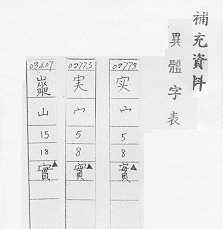 補充資料
異體字表
02773
实
宀
5
8
實▲
02773
実
宀
5
8
實▲
山
15
18
實▲